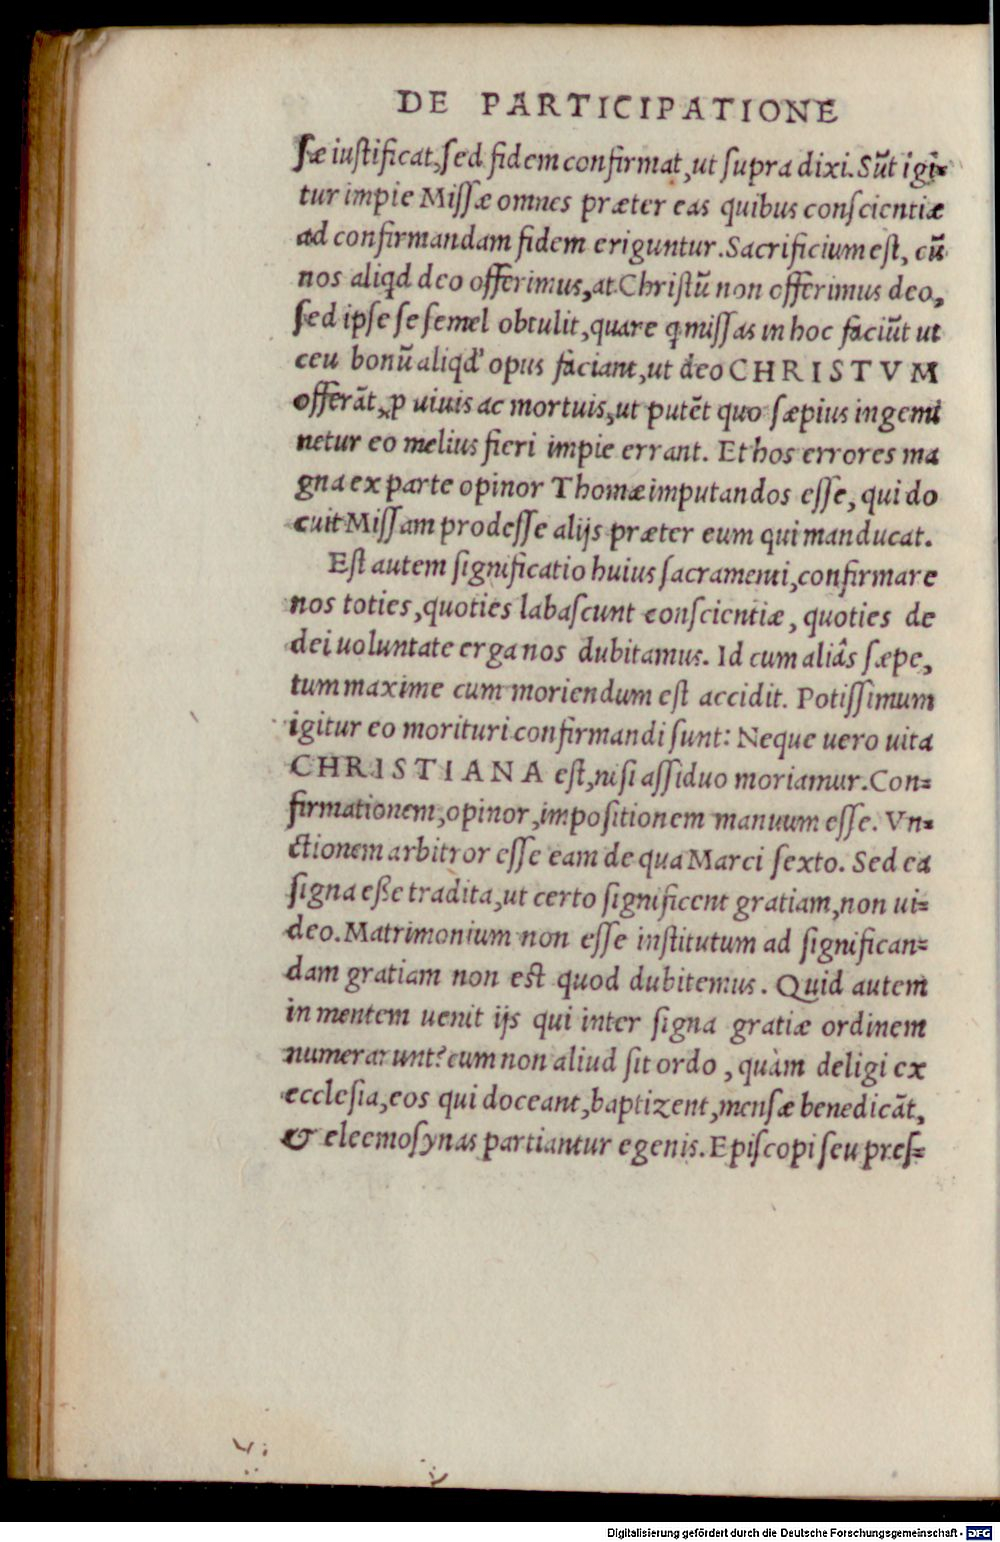 DE PARTICIPATIONE
ſæ iuſtificat, ſed fidem confirmat, ut ſupra dixi. Sũt igi-
tur impie Miſſæ omnes præter eas quibus conſcientiæ
ad confirmandam fidem eriguntur. Sacrificium eſt, cũ
nos aliqd deo offerimus, at Chriſtũ non offerimus deo,
ſed ipſe ſe ſemel obtulit, quare q miſſas in hoc faciũt ut
ceu bonũ aliqd opus faciant, ut deo CHRISTVM
offerãt, ꝓ uiuis ac mortuis, ut putẽt quo ſæpius ingemi
netur eo melius fieri impie errant. Et hos errores ma
gna ex parte opinor Thomæ imputandos eſſe, qui do
cuit Miſſam prodeſſe alijs præter eum qui manducat.
Eſt autem ſignificatio huius ſacramenti, confirmare
nos toties, quoties labaſcunt conſcientiæ, quoties de
dei uoluntate erga nos dubitamus. Id cum aliâs ſæpe,
tum maxime cum moriendum eſt accidit. Potiſſimum
igitur eo morituri confirmandi ſunt: Neque uero uita
CHRISTIANA eſt, niſi aſſiduo moriamur. Con-
firmationem, opinor, impoſitionem manuum eſſe. Vn-
ctionem arbitror eſſe eam de qua Marci ſexto. Sed ea
ſigna eße tradita, ut certo ſignificent gratiam, non ui-
deo. Matrimonium non eſſe inſtitutum ad ſignifican-
dam gratiam non eſt quod dubitemus. Quid autem
in mentem uenit ijs qui inter ſigna gratiæ ordinem
numerarunt? cum non aliud ſit ordo, quàm deligi ex
eccleſia, eos qui doceant, baptizent, menſæ benedicãt,
& eleemoſynas partiantur egenis. Epiſcopi ſeu preſ-
Digitalisierung gefördert durch die Deutsche Forschungsgemeinschaft - DFG